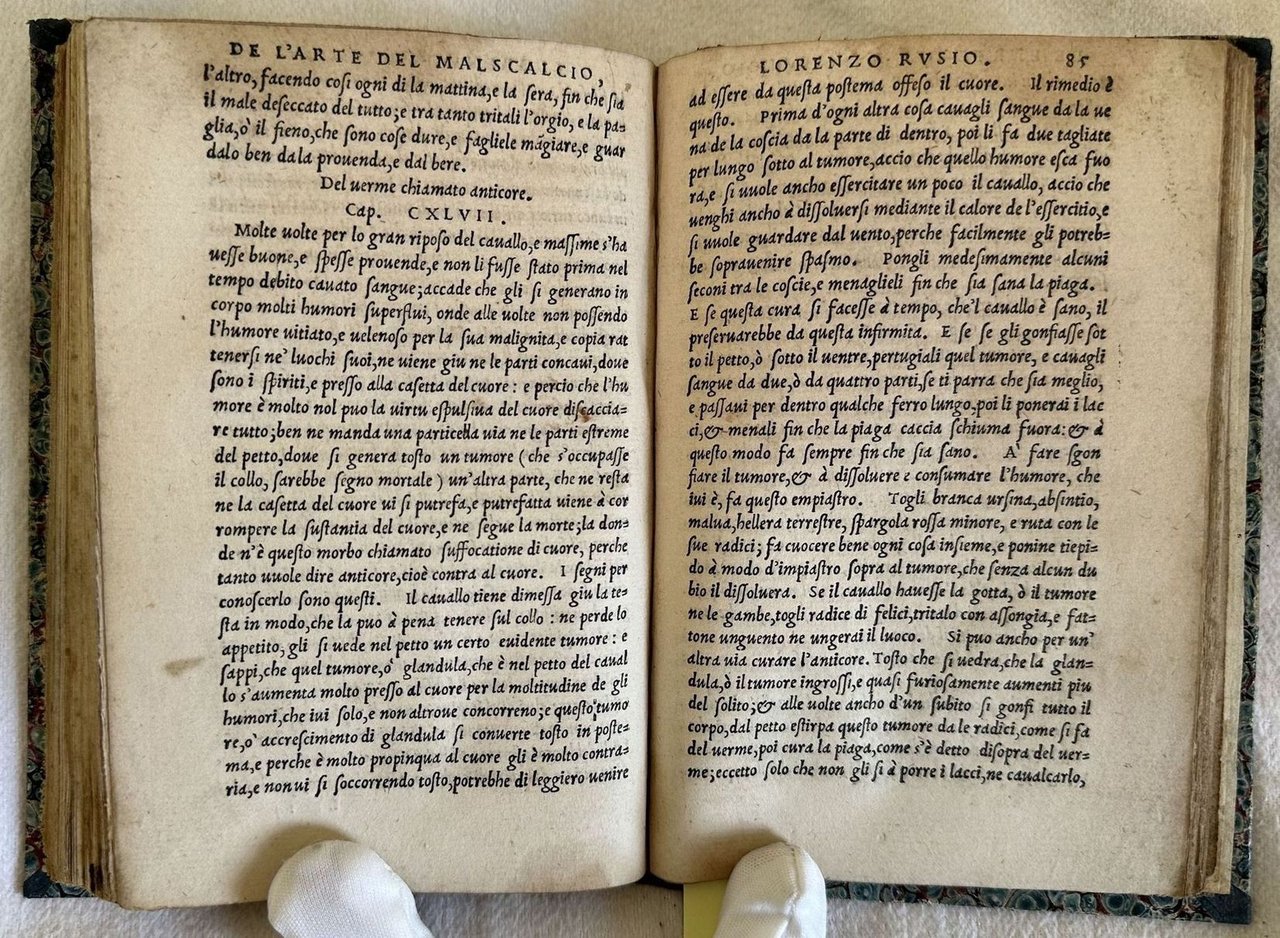 DE L'ARTE DEL MALSCALCIO,
l'altro, facendo cosi ogni di la mattina, e la sera, fin che sia
il male deseccato del tutto; e tra tanto tritali l'orgio, e la pa=
glia, ò il fieno, che sono cose dure, e fagliele mãgiare, e guar
dalo ben da la prouenda, e dal bere.
Del uerme chiamato anticore.
Cap. CXLVII.
Molte uolte per lo gran riposo del cauallo, e massime s'ha
uesse buone, e spesse prouende, e non li fusse stato prima nel
tempo debito cauato sangue; accade che gli si generano in
corpo molti humori superflui, onde alle uolte non possendo
l'humore uitiato, e uelenoso per la sua malignita, e copia rat
tenersi ne' luochi suoi, ne uiene giu ne le parti concaui, doue
sono i spiriti, e presso alla casetta del cuore: e percio che l'hu
more è molto nol puo la uirtu espulsiua del cuore discaccia=
re tutto; ben ne manda una particella uia ne le parti estreme
del petto, doue si genera tosto un tumore (che s'occupasse
il collo, sarebbe segno mortale) un'altra parte, che ne resta
ne la casetta del cuore ui si putrefa, e putrefatta uiene à cor
rompere la sustantia del cuore, e ne segue la morte; la don=
de n'è questo morbo chiamato suffocatione di cuore, perche
tanto uuole dire anticore, cioè contra al cuore. I segni per
conoscerlo sono questi. Il cauallo tiene dimessa giu la te=
sta in modo, che la puo à pena tenere sul collo: ne perde lo
appetito, gli si uede nel petto un certo euidente tumore: e
sappi, che quel tumore, o' glandula, che è nel petto del caual
lo s'aumenta molto presso al cuore per la moltitudine de gli
humori, che iui solo, e non altroue concorreno; e questo tumo
re, o' accrescimento di glandula si conuerte tosto in poste=
ma, e perche è molto propinqua al cuore gli è molto contra=
ria, e non ui si soccorrendo tosto, potrebhe di leggiero uenire
LORENZO RVSIO. 85
ad essere da questa postema offeso il cuore. Il rimedio è
questo. Prima d'ogni altra cosa cauagli sangue da la ue
na de la coscia da la parte di dentro, poi li fa due tagliate
per lungo sotto al tumore, accio che quello humore esca fuo
ra, e si uuole ancho essercitare un poco il cauallo, accio che
uenghi ancho à dissoluersi mediante il calore de l'essercitio, e
si uuole guardare dal uento, perche facilmente gli potreb=
be soprauenire spasmo. Pongli medesimamente alcuni
seconi tra le coscie, e menaglieli fin che sia sana la piaga.
E se questa cura si facesse à tempo, che'l cauallo è sano, il
preseruarebbe da questa infirmita. E se se gli gonfiasse sot
to il petto, ò sotto il uentre, pertugiali quel tumore, e cauagli
sangue da due, ò da quattro parti, se ti parra che sia meglio,
e passaui per dentro qualche ferro lungo, poi li ponerai i lac
ci, & menali fin che la piaga caccia schiuma fuora: & à
questo modo fa sempre fin che sia sano. A' fare sgon
fiare il tumore, & à dissoluere e consumare l'humore, che
iui è, fa questo empiastro. Togli branca ursina, absintio,
malua, hellera terrestre, spargola rossa minore, e ruta con le
sue radici; fa cuocere bene ogni cosa insieme, e ponine tiepi=
do à modo d'impiastro sopra al tumore, che senza alcun du
bio il dissoluera. Se il cauallo hauesse la gotta, ò il tumore
ne le gambe, togli radice di felici, tritalo con assongia, e fat=
tone unguento ne ungerai il luoco. Si puo ancho per un'
altra uia curare l'anticore. Tosto che si uedra, che la glan=
dula, ò il tumore ingrossi, e quasi furiosamente aumenti piu
del solito; & alle uolte ancho d'un subito si gonfi tutto il
corpo, dal petto estirpa questo tumore da le radici, come si fa
del uerme, poi cura la piaga, come s'è detto disopra del uer=
me; eccetto solo che non gli si à porre i lacci, ne caualcarlo,